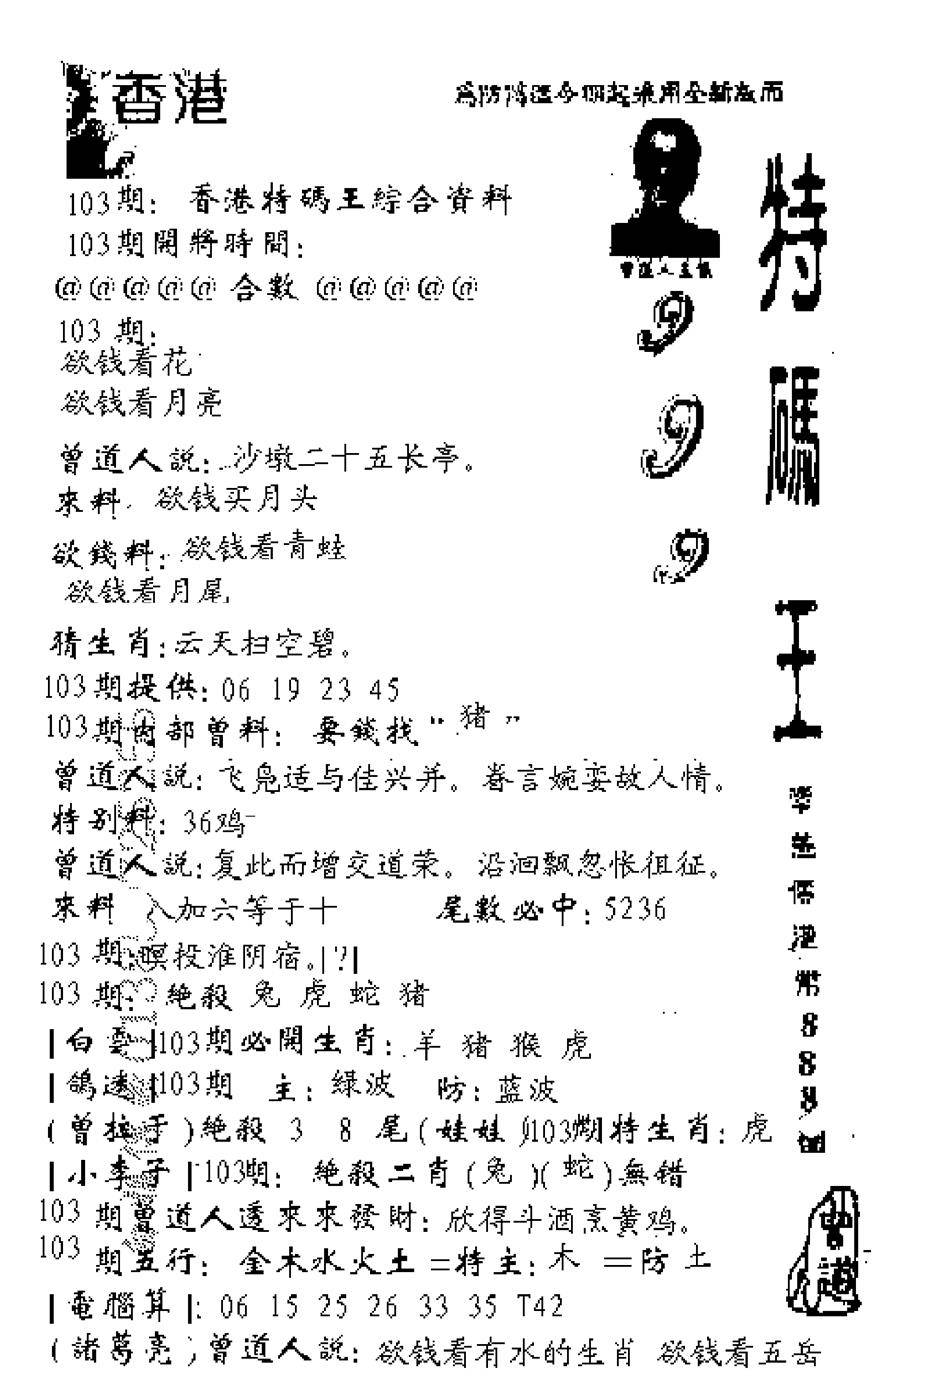 香港
103期: 香港特碼王綜合資料
103期開將時間:
@@@@@ 合數 @@@@@
103 期:
欲钱看花
欲钱看月亮
曾道人説: 沙墩二十五长亭。
來料 欲钱买月头
欲錢料: 欲钱看青蛙
欲钱看月尾
猜生肖: 云天扫空碧。
103期提供: 06 19 23 45
103期内部曾料: 要錢找“猪”
曾道人説: 飞凫适与佳兴并。眷言婉娈故人情。
特别料: 36鸡
曾道人説: 复此而增交道荣。沿洄飘忽怅徂征。
來料 入加六等于十 尾數必中: 5236
103 期:暝投淮阴宿。|?|
103 期: 绝殺 兔 虎 蛇 猪
|白雲|103期必開生肖: 羊 猪 猴 虎
|鴿透|103期 主: 緑波 防: 蓝波
(曾拉于)绝殺 3 8 尾(娃娃)103期特生肖: 虎
|小李子|103期: 绝殺二肖(兔)(蛇)無错
103 期曾道人透來來發財: 欣得斗酒烹黄鸡。
103 期五行: 金木水火土=特主: 木 =防 土
|電腦算|: 06 15 25 26 33 35 T42
(諸葛亮)曾道人説: 欲钱看有水的生肖 欲钱看五岳
為防 今期起采用全新版面
曾道人主
9
9
9
特
碼
王
港
幣
8
8
8
曾
道